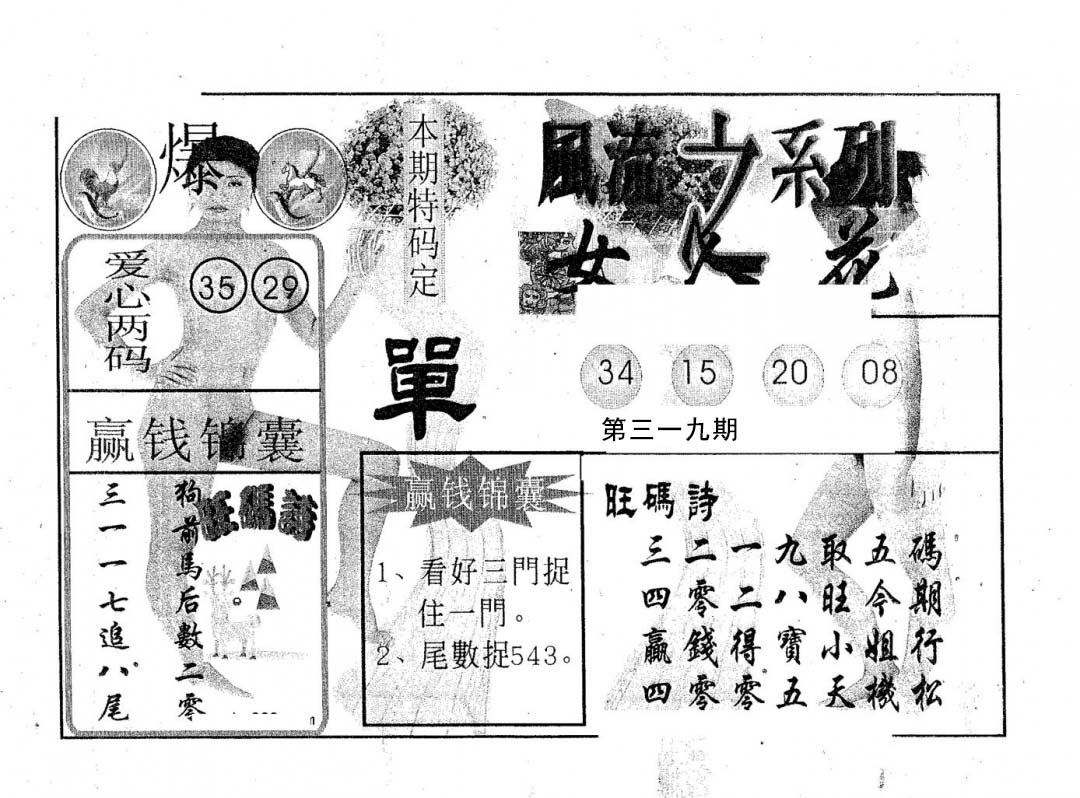 爆
爱心两码
35 29
赢钱锦囊
狗前馬后數二零
三一一七追八尾
旺碼詩
本期特码定
單
風流之系列
女人花
34 15 20 08
第三一九期
赢钱锦囊
1、看好三門捉
住一門。
2、尾數捉543。
旺碼詩
三二一九取五碼
四零二八旺今期
贏錢得寶小姐行
四零零五天機松